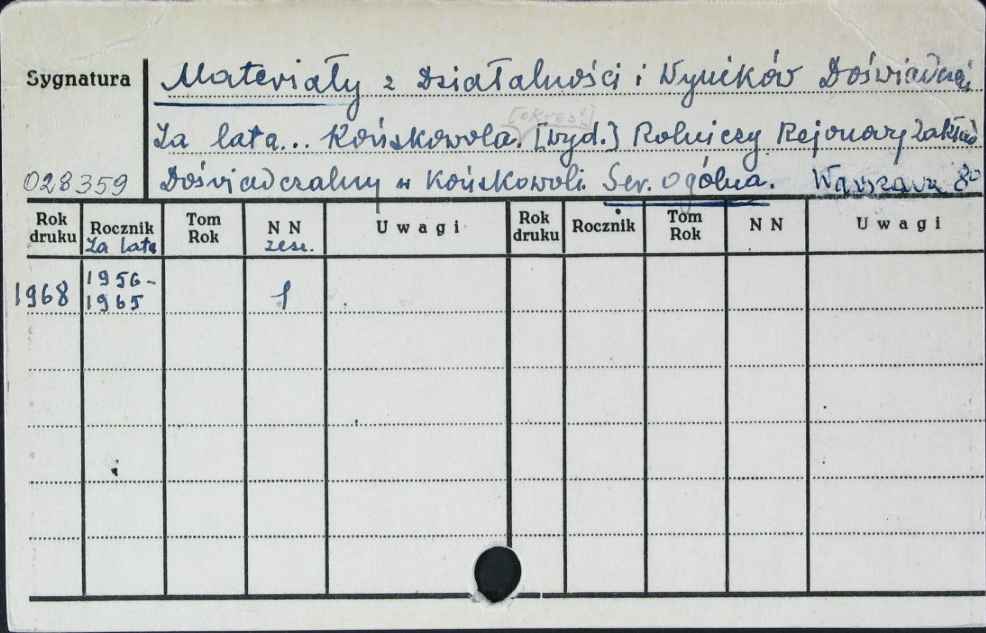 Sygnatura Materiały z Działalności i Wyników Doświadczeń
[okres]
Za lata... Końskowola. [wyd.] Rolniczy Rejonowy Zakład
028359 Doświadczalny w Końskowoli. Ser. ogólna. Warszawa
Rok druku Rocznik Za lata Tom Rok NN zesz. Uwagi Rok druku Rocznik Tom Rok NN Uwagi
1968 1956-1965 1